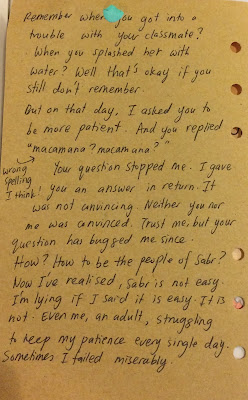 Remember when you got into a
trouble with your classmate?
When you splashed her with
water? Well that's okay if you
still don't remember.
But on that day, I asked you to
be more patient. And you replied
"macamana? macamana?"
wrong
spelling
I think!
Your question stopped me. I gave
you an answer in return. It
was not convincing. Neither you nor
me was convinced. Trust me, but your
question has bugged me since.
How? How to be the people of Sabr?
Now I've realised, sabr is not easy.
I'm lying if I said it is easy. It is
not. Even me, an adult, struggling
to keep my patience every single day.
Sometimes I failed miserably.